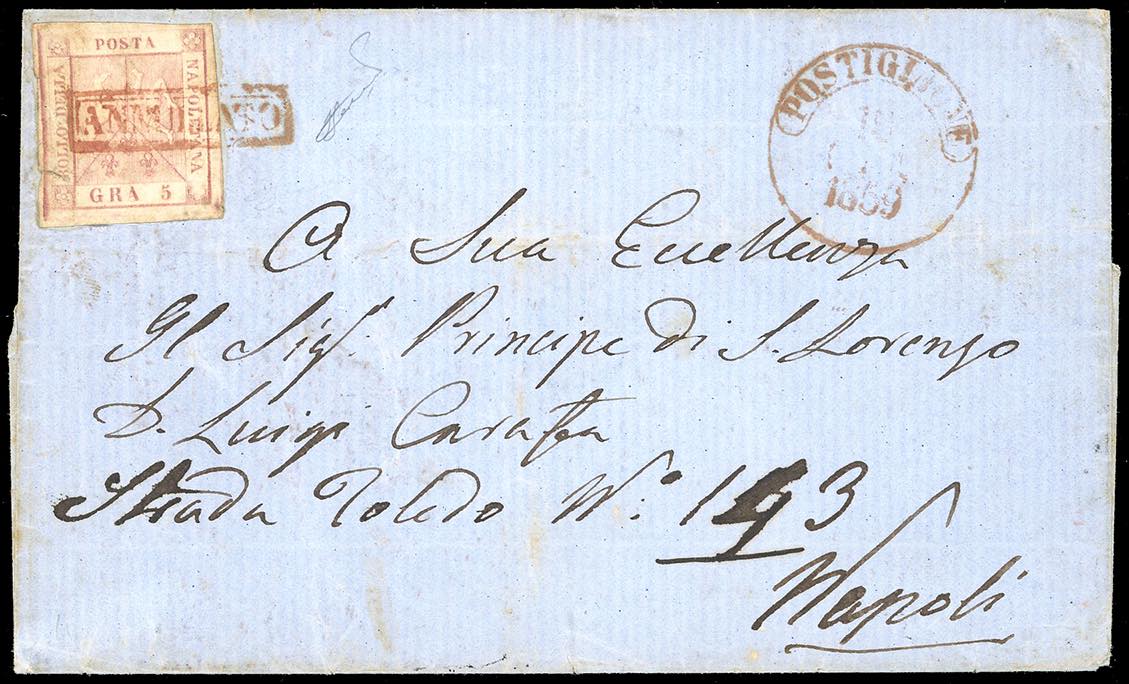 POSTA
NAPOLETANA
BOLLO DELLA
GRA 5
ANNULLATO
POSTIGLIONE
1859
A Sua Eccellenza
Il Sigr. Principe di S. Lorenzo
D. Luigi Carafa
Strada Toledo N.º 193
Napoli